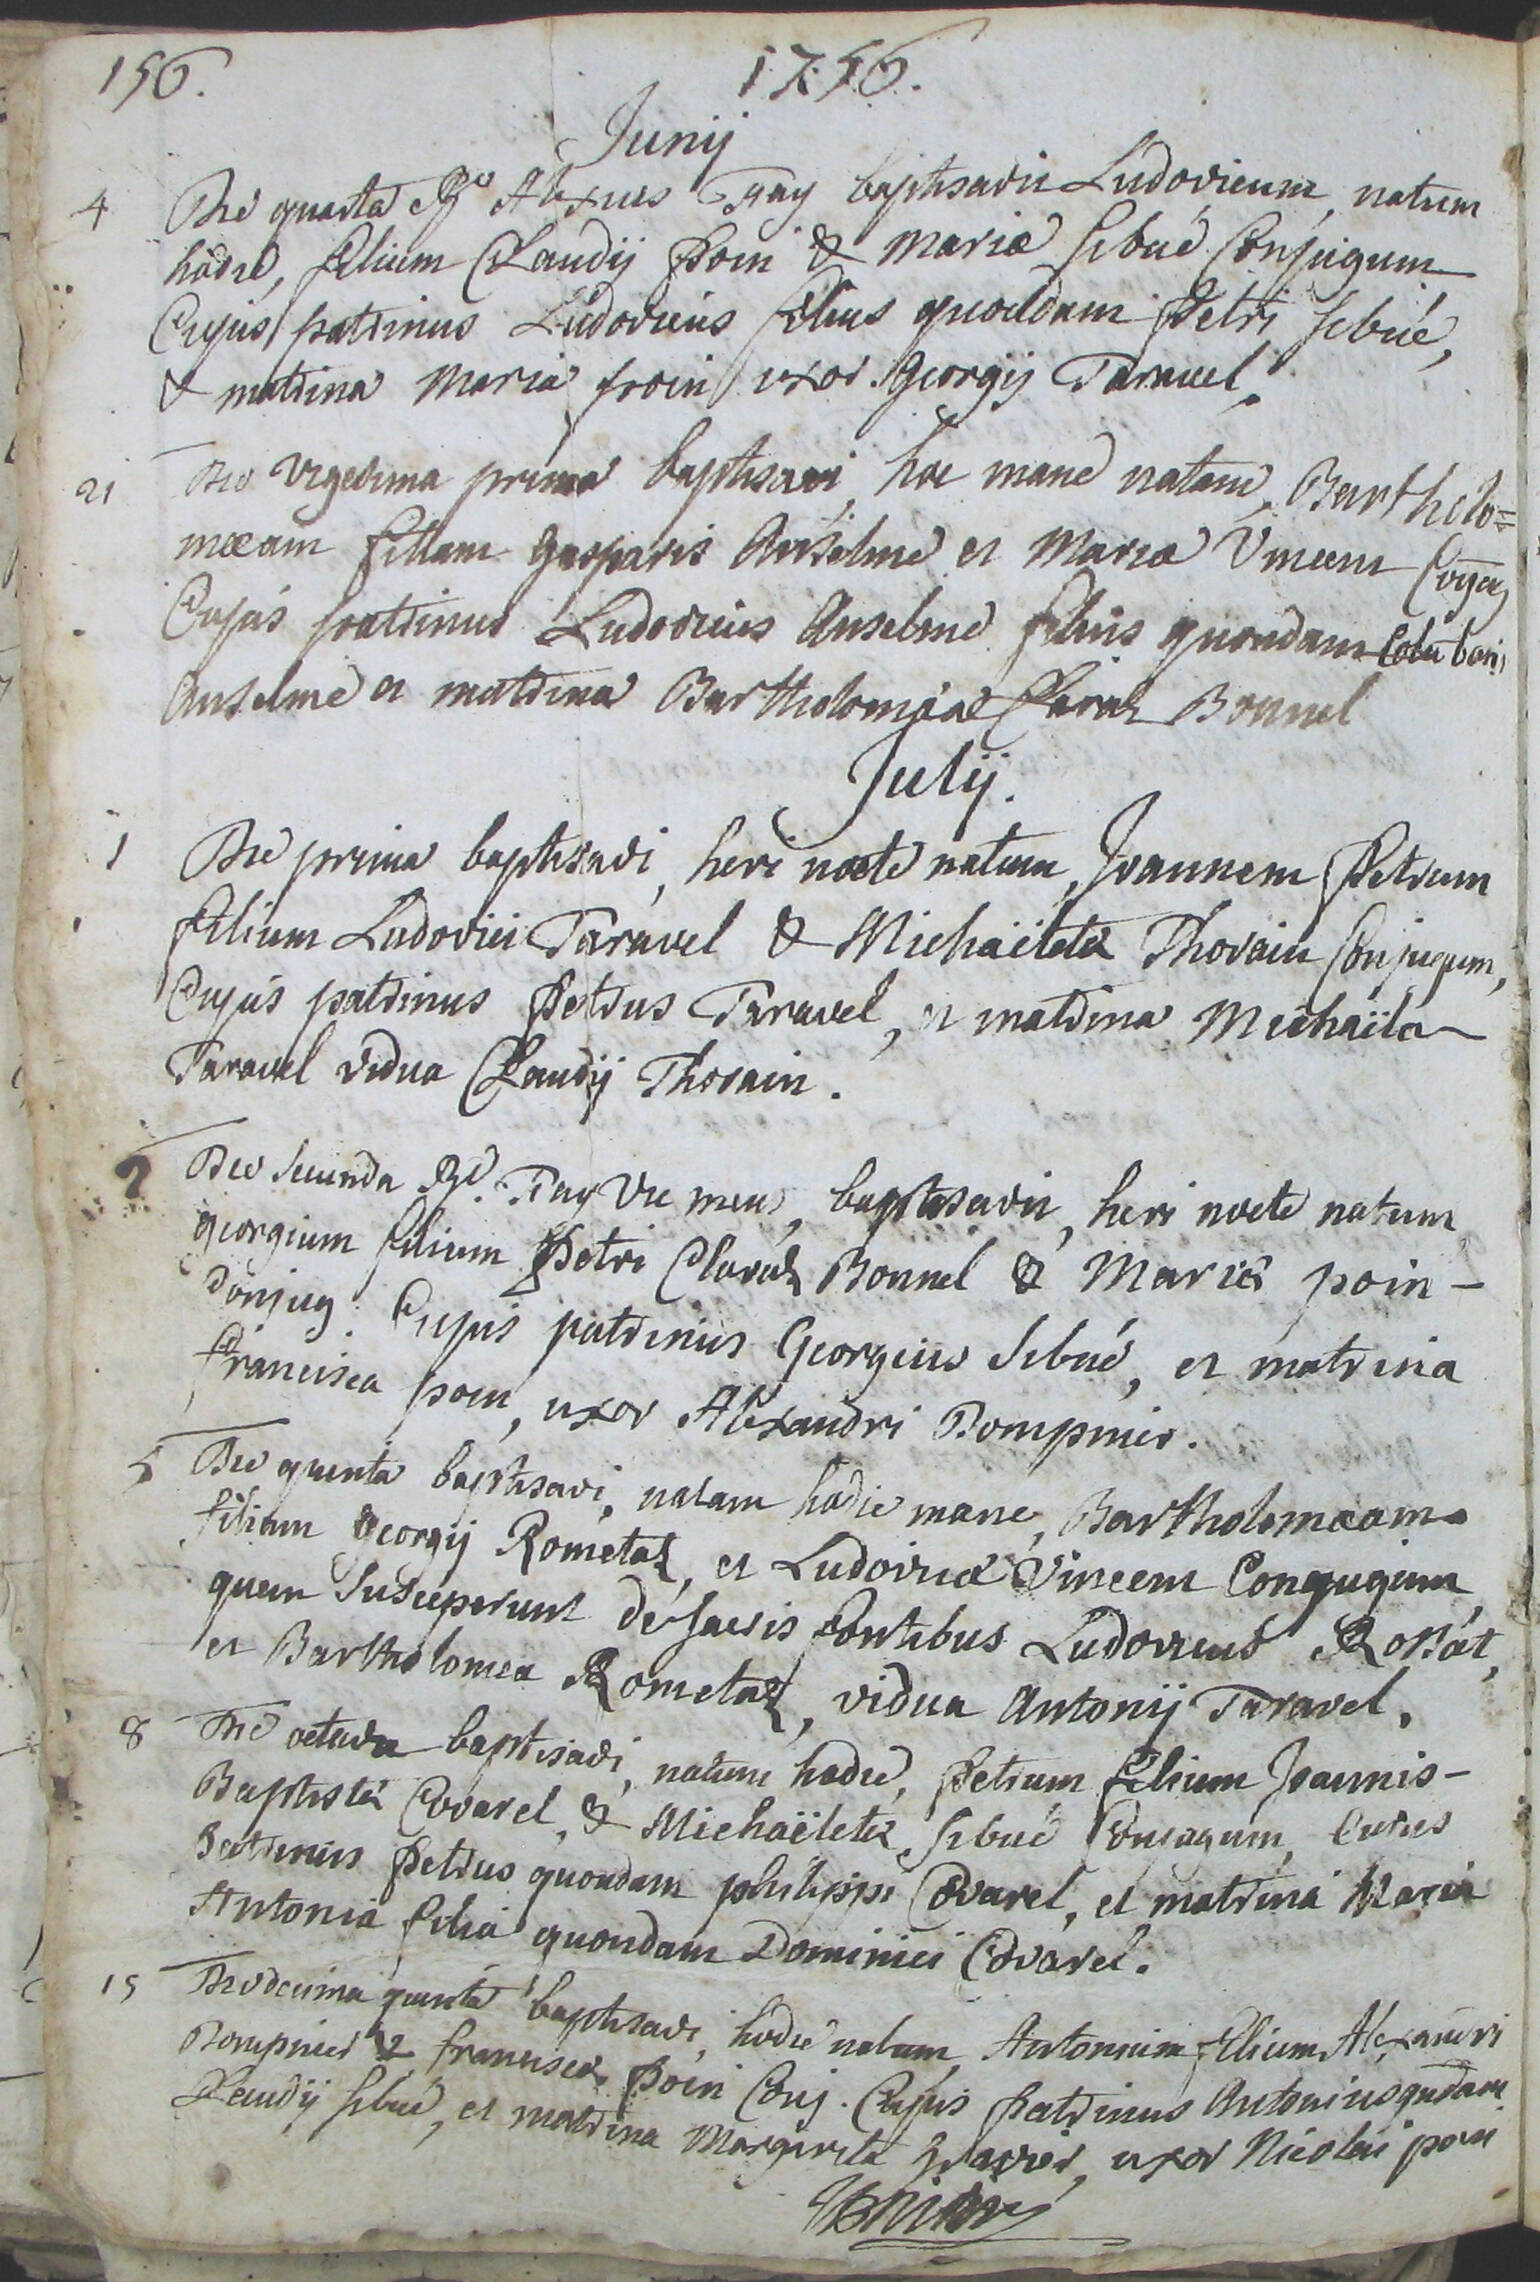 156. 1756.
Junij
4 Die quarta Rdus Alexius Fray baptisavit Ludovicum, natum
hodie, filium Claudij Poin & Mariæ Sibué Conjugum
Cujus patrinus Ludovicus filius quondam Petri Sibué,
& matrina Maria poin uxor Georgij Taravel.
21 Die vigesima prima baptisavi, hoc mane natam, Bartholo=
mæam filiam Gasparis Anselme et Mariæ Vincent Conjug
Cujus patrinus Ludovicus Anselme filius quondam
Anselme et matrina Bartholomæa Claraz Bonnel
Julij.
1 Die prima baptisavi, heri nocte natum, Joannem Petrum
filium Ludovici Taravel & Michaëletæ Thorain Conjugum,
Cujus patrinus Petrus Taravel, et matrina Michaëla
Taravel vidua Claudij Thorain.
2 Die secunda Rd. Fray Vic meus, baptisavit, heri nocte natum
georgium filium Petri Claraz Bonnel & Mariæ poin
Conjug. Cujus patrinus Georgius Sibué, et matrina
francisca poin, uxor Alexandri Bompnier.
5 Die quinta baptisavi, natam hodie mane, Bartholomæam
filiam Georgij Rometaz, et Ludovicæ Vincent Conjugum
quem Susceperunt de sacris fontibus Ludovicus Rossat,
et Bartholomea Rometaz, vidua Antonij Taravel.
8 Die octava baptisavi, natum hodie, Petrum filium Joannis
Baptistæ Covarel, & Michaëletæ Sibué Conjugum, Cujus
Patrinus Petrus quondam philippi Covarel, et matrina Maria
Antonia filia quondam Dominici Covarel.
15 Die decima quinta baptisavi, hodie natum, Antonium filium Alexandri
Bompnier & franciscæ Poin Conj. Cujus Patrinus Antonius qudam
Claudij Sibué, et matrina Margarita uxor Nicolai poin